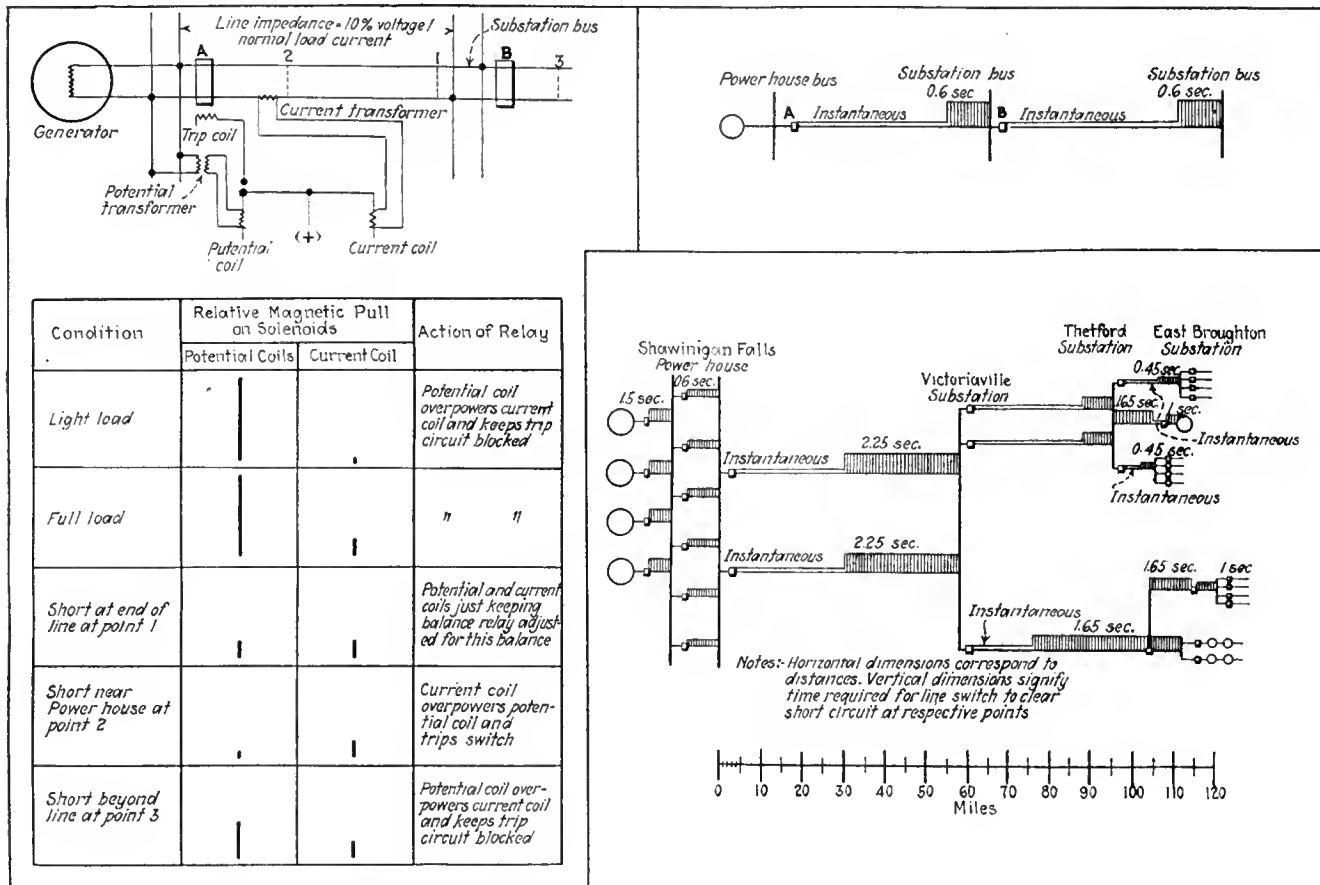 Line impedance = 10% voltage /
normal load current
Substation bus
A
2
1
B
3
Generator
Current transformer
Trip coil
Potential
transformer
(+)
Putential
coil
Current coil
Condition
Relative Magnetic Pull
on Solenoids
Action of Relay
Potential Coils
Current Coil
Light load
Potential coil
overpowers current
coil and keeps trip
circuit blocked
Full load
" "
Short at end of
line at point 1
Potential and current
coils just keeping
balance relay adjust-
ed for this balance
Short near
Power house at
point 2
Current coil
overpowers poten-
tial coil and
trips switch
Short beyond
line at point 3
Potential coil over-
powers current coil
and keeps trip
circuit blocked
Power house bus
Substation bus
0.6 sec
Substation bus
0.6 sec.
A
Instantaneous
B
Instantaneous
Shawinigan Falls
Power house
1.5 sec.
06 sec.
Instantaneous
2.25 sec.
Instantaneous
2.25 sec.
Victoriaville
Substation
Thetford
Substation
East Broughton
Substation
0.45 sec.
1.65 sec.
1 sec.
Instantaneous
0.45 sec.
Instantaneous
Instantaneous
1.65 sec.
1.65 sec.
1 sec
Notes:- Horizontal dimensions correspond to
distances. Vertical dimensions signify
time required for line switch to clear
short circuit at respective points
0 10 20 30 40 50 60 70 80 90 100 110 120
Miles